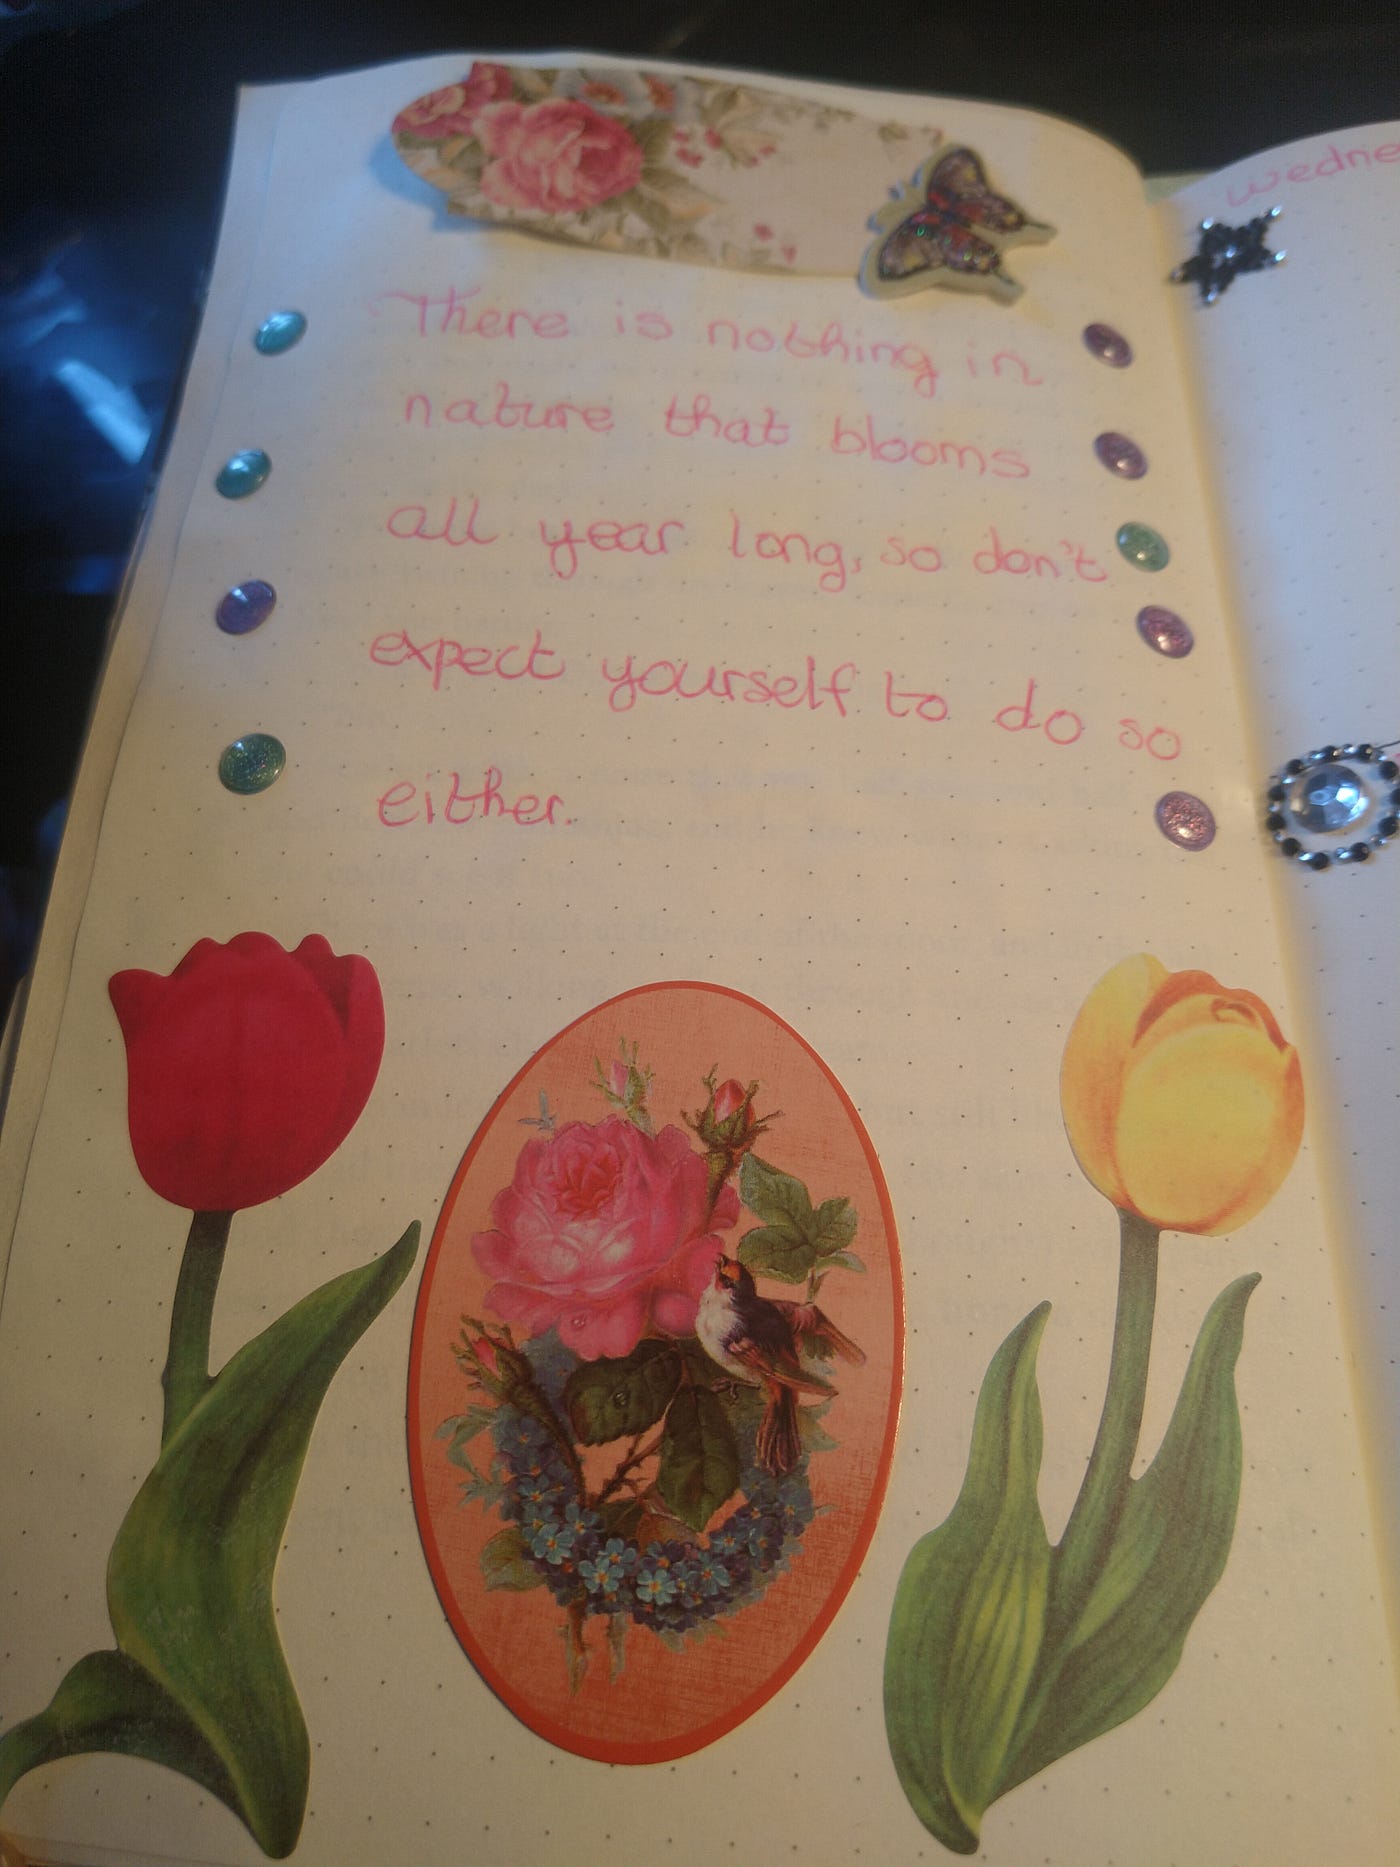 There is nothing in
nature that blooms
all year long, so don't
expect yourself to do so
either.
wedne